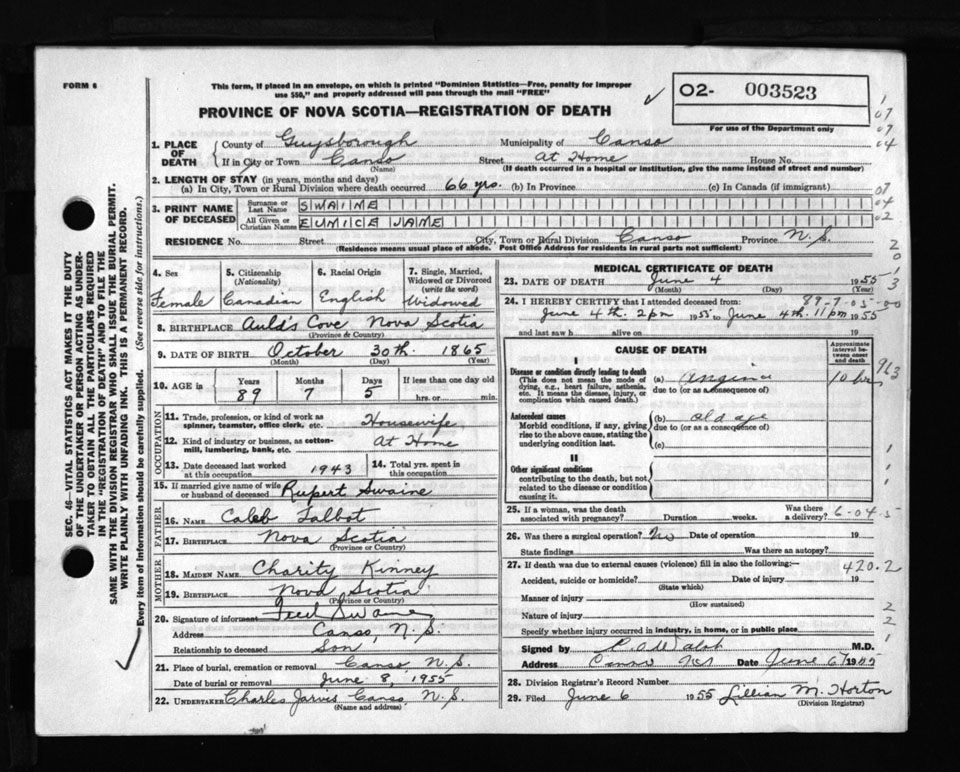 FORM 6
This form, if placed in an envelope, on which is printed "Dominion Statistics—Free, penalty for improper
use $50," and properly addressed will pass through the mail "FREE"
PROVINCE OF NOVA SCOTIA—REGISTRATION OF DEATH
O2- 003523
For use of the Department only
1 07
07
04
1. PLACE OF DEATH
County of Guysborough Municipality of Canso
If in City or Town Canso Street At Home House No.
(Name) (If death occurred in a hospital or institution, give the name instead of street and number)
2. LENGTH OF STAY (in years, months and days)
(a) In City, Town or Rural Division where death occurred 66 yrs. (b) In Province (c) In Canada (if immigrant)
07
04
02
3. PRINT NAME OF DECEASED
Surname or Last Name SWAINE
All Given or Christian Names EUNICE JANE
RESIDENCE No. Street City, Town or Rural Division Canso Province N.S.
(Residence means usual place of abode. Post Office Address for residents in rural parts not sufficient)
SEC. 46—VITAL STATISTICS ACT MAKES IT THE DUTY
OF THE UNDERTAKER OR PERSON ACTING AS UNDER-
TAKER TO OBTAIN ALL THE PARTICULARS REQUIRED
IN THE "REGISTRATION OF DEATH" AND TO FILE THE
SAME WITH THE DIVISION REGISTRAR WHO SHALL ISSUE THE BURIAL PERMIT.
WRITE PLAINLY WITH UNFADING INK. THIS IS A PERMANENT RECORD.
Every item of information should be carefully supplied. (See reverse side for instructions.)
4. Sex
Female
5. Citizenship
(Nationality)
Canadian
6. Racial Origin
English
7. Single, Married,
Widowed or Divorced
(write the word)
Widowed
8. BIRTHPLACE Auld's Cove Nova Scotia
(Province & Country)
9. DATE OF BIRTH October 30th. 1865
(Month) (Day) (Year)
10. AGE in
Years Months Days If less than one day old
89 7 5 hrs. or min.
OCCUPATION
11. Trade, profession, or kind of work as
spinner, teamster, office clerk, etc. Housewife
12. Kind of industry or business, as cotton-
mill, lumbering, bank, etc. At Home
13. Date deceased last worked
at this occupation 1943
14. Total yrs. spent in
this occupation
15. If married give name of wife
or husband of deceased Rupert Swaine
FATHER
16. NAME Caleb Talbot
17. BIRTHPLACE Nova Scotia
(Province or Country)
MOTHER
18. MAIDEN NAME Charity Kinney
19. BIRTHPLACE Nova Scotia
(Province or Country)
20. Signature of informant Swaine
Address Canso, N.S.
Relationship to deceased Son
21. Place of burial, cremation or removal Canso N.S.
Date of burial or removal June 8, 1955
22. UNDERTAKER Charles Jarvis Canso, N.S.
(Name and address)
MEDICAL CERTIFICATE OF DEATH
23. DATE OF DEATH June 4 1955
(Month) (Day)
24. I HEREBY CERTIFY that I attended deceased from:
89-7-05-00
June 4th. 2pm 1955 to June 4th. 11pm 1955
and last saw h alive on 19
CAUSE OF DEATH
Approximate
interval between
onset
and death
I
Disease or condition directly leading to death
(This does not mean the mode of
dying, e.g., heart failure, asthenia,
etc. It means the disease, injury, or
complication which caused death.)
(a) angina
due to (or as a consequence of)
10 hrs
963
Antecedent causes
Morbid conditions, if any, giving
rise to the above cause, stating the
underlying condition last.
(b) old age
due to (or as a consequence of)
(c)
II
Other significant conditions
contributing to the death, but not
related to the disease or condition
causing it.
25. If a woman, was the death
associated with pregnancy? Duration weeks. Was there
a delivery? 6-04-5
26. Was there a surgical operation? No Date of operation 19
State findings Was there an autopsy?
27. If death was due to external causes (violence) fill in also the following:—
420.2
Accident, suicide or homicide? Date of injury 19
(State which)
Manner of injury
(How sustained)
Nature of injury
Specify whether injury occurred in industry, in home, or in public place
Signed by M.D.
Address Canso NS Date June 6/ 1955
28. Division Registrar's Record Number
29. Filed June 6 1955 Lillian M. Horton
(Division Registrar)